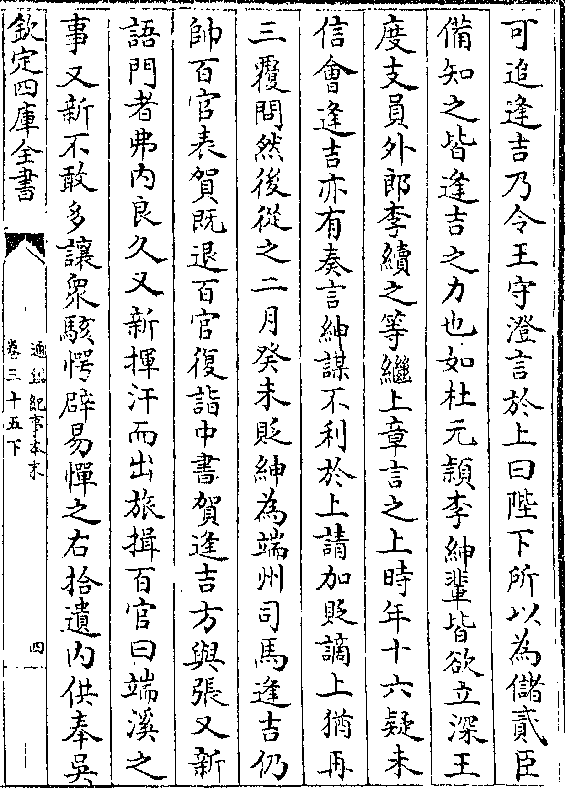 可追逢吉乃令王守澄言於上曰陛下所以為儲貳臣
備知之皆逢吉之力也如杜元頴李紳輩皆欲立深王
度支員外郎李續之等繼上章言之上時年十六疑未
信會逢吉亦有奏言紳謀不利於上請加貶謫上猶再
三覆問然後從之二月癸未貶紳為端州司馬逢吉仍
帥百官表賀既退百官復詣中書賀逢吉方與張又新
語門者弗内良久又新揮汗而出旅揖百官曰端溪之
事又新不敢多讓衆駭愕辟易憚之右拾遺内供奉吳
欽定四庫全書
通鑑紀事本末
卷三十五下
四